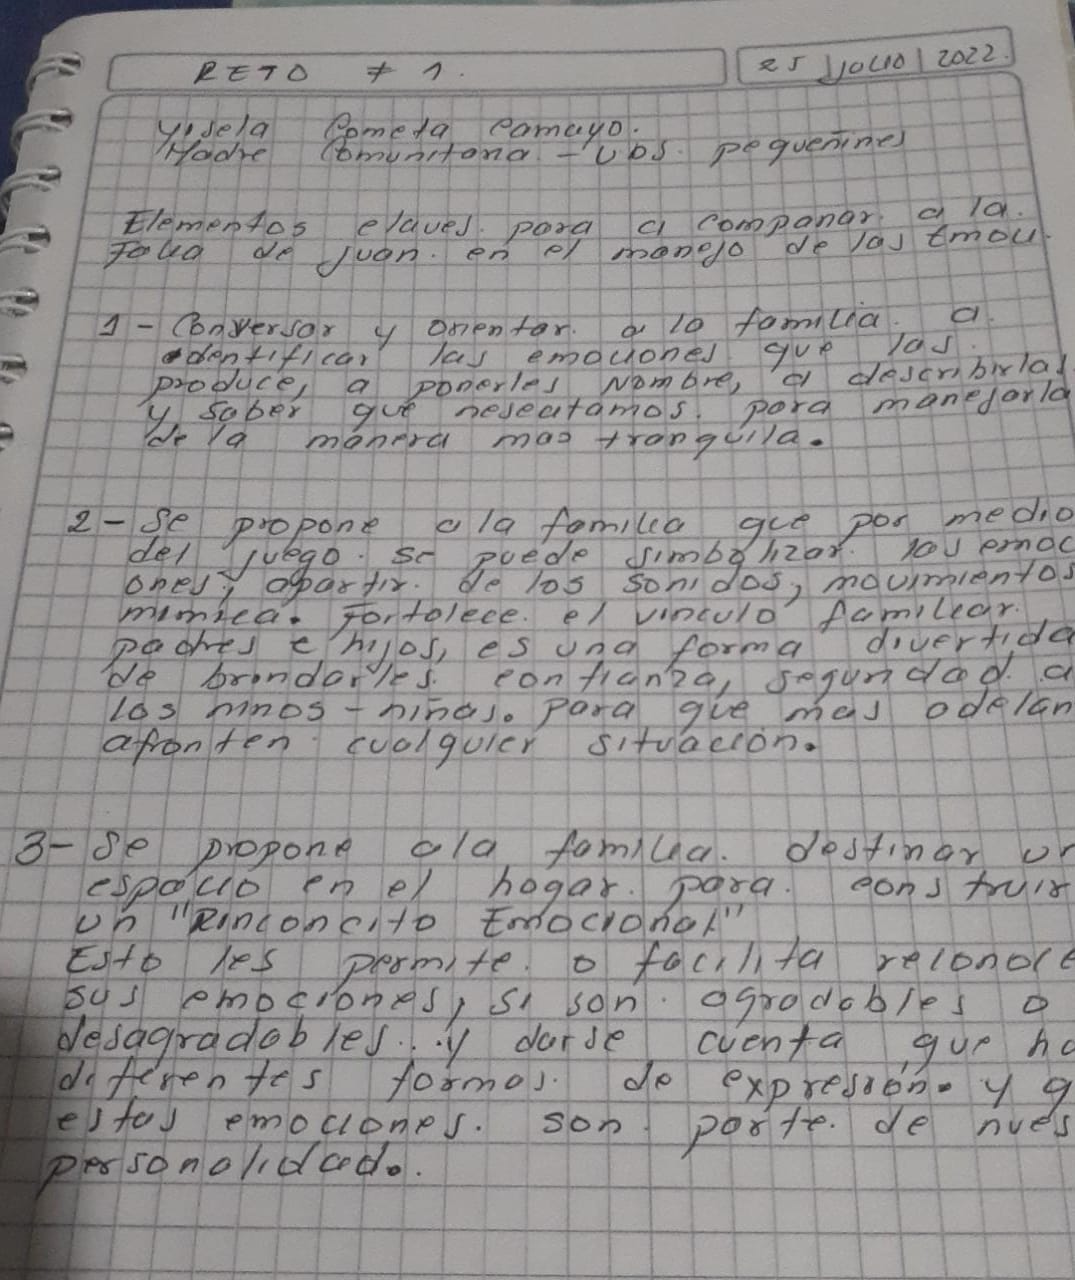 RETO # 1.
25 JULIO 2022.
Yisela Cometa Camayo.
Madre Comunitaria - UDS. pequeñines
Elementos claves. para a companar. a la.
Folia de Juan. en el manejo de las Emoci.
1 - Conversar y orientar. a la familia. a.
identificar las emociones que las.
produce, a ponerles Nombre, a describirlas
y saber que nesecitamos. para manejarla
de la manera mas tranquila.
2 - Se propone a la familia que por medio
del juego. se puede simbolizar. las emoc
ones, apartir. de los sonidos, movimientos
mimica. Fortalece. el vinculo familiar.
padres e hijos, es una forma divertida
de brindarles. confianza, seguridad. a
los niños - niñas. para que mas adelan
afronten cualquier situación.
3 - Se propone a la familia. destinar un
espacio en el hogar. para. construir
un "Rinconcito Emocional"
Esto les permite. o facilita reconoce
sus emociones, si son. agradables o
desagradables.. y darse cuenta que ha
diferentes formas. de expresión. y q
estas emociones. son. parte. de nues
personalidad.